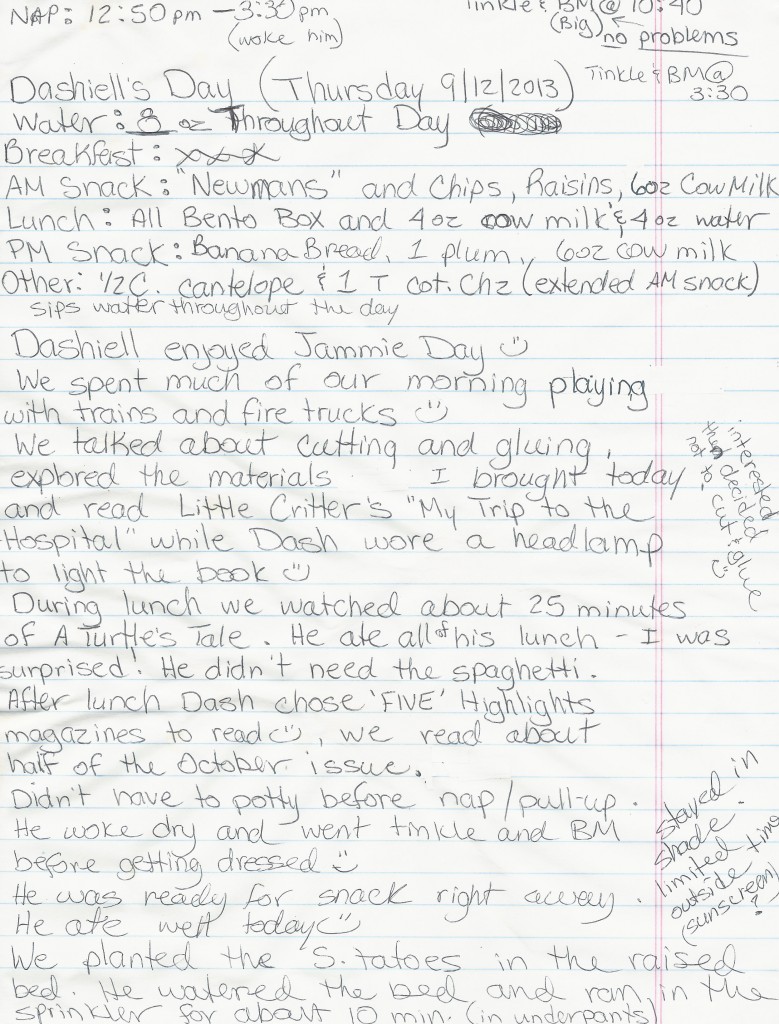 NAP: 12:50 pm – 3:30 pm
(woke him)
Tinkle & BM @ 10:40
(Big)
no problems
Tinkle & BM @
3:30
Dashiell's Day (Thursday 9/12/2013)
Water: 8 oz Throughout Day
Breakfast: xxx
AM Snack: "Newmans" and Chips, Raisins, 6oz Cow Milk
Lunch: All Bento Box and 4 oz cow milk & 4 oz water
PM Snack: Banana Bread, 1 plum, 6oz cow milk
Other: 1/2 C. cantelope & 1 T cot. Chz (extended AM snack)
sips water throughout the day
Dashiell enjoyed Jammie Day ☺
We spent much of our morning playing
with trains and fire trucks ☺
We talked about cutting and gluing,
explored the materials I brought today
and read Little Critter's "My Trip to the
Hospital" while Dash wore a headlamp
to light the book ☺
interested
decided
not to
cut & glue
☺
During lunch we watched about 25 minutes
of A Turtle's Tale. He ate all of his lunch – I was
surprised! He didn't need the spaghetti.
After lunch Dash chose 'FIVE' Highlights
magazines to read ☺, we read about
half of the October issue.
Didn't have to potty before nap/pull-up.
He woke dry and went tinkle and BM
before getting dressed ☺
He was ready for snack right away.
He ate well today ☺
stayed in
shade.
limited time
outside
(sunscreen)
?
We planted the "S. tatoes in the raised
bed. He watered the bed and ran in the
sprinkler for about 10 min. (in underpants)